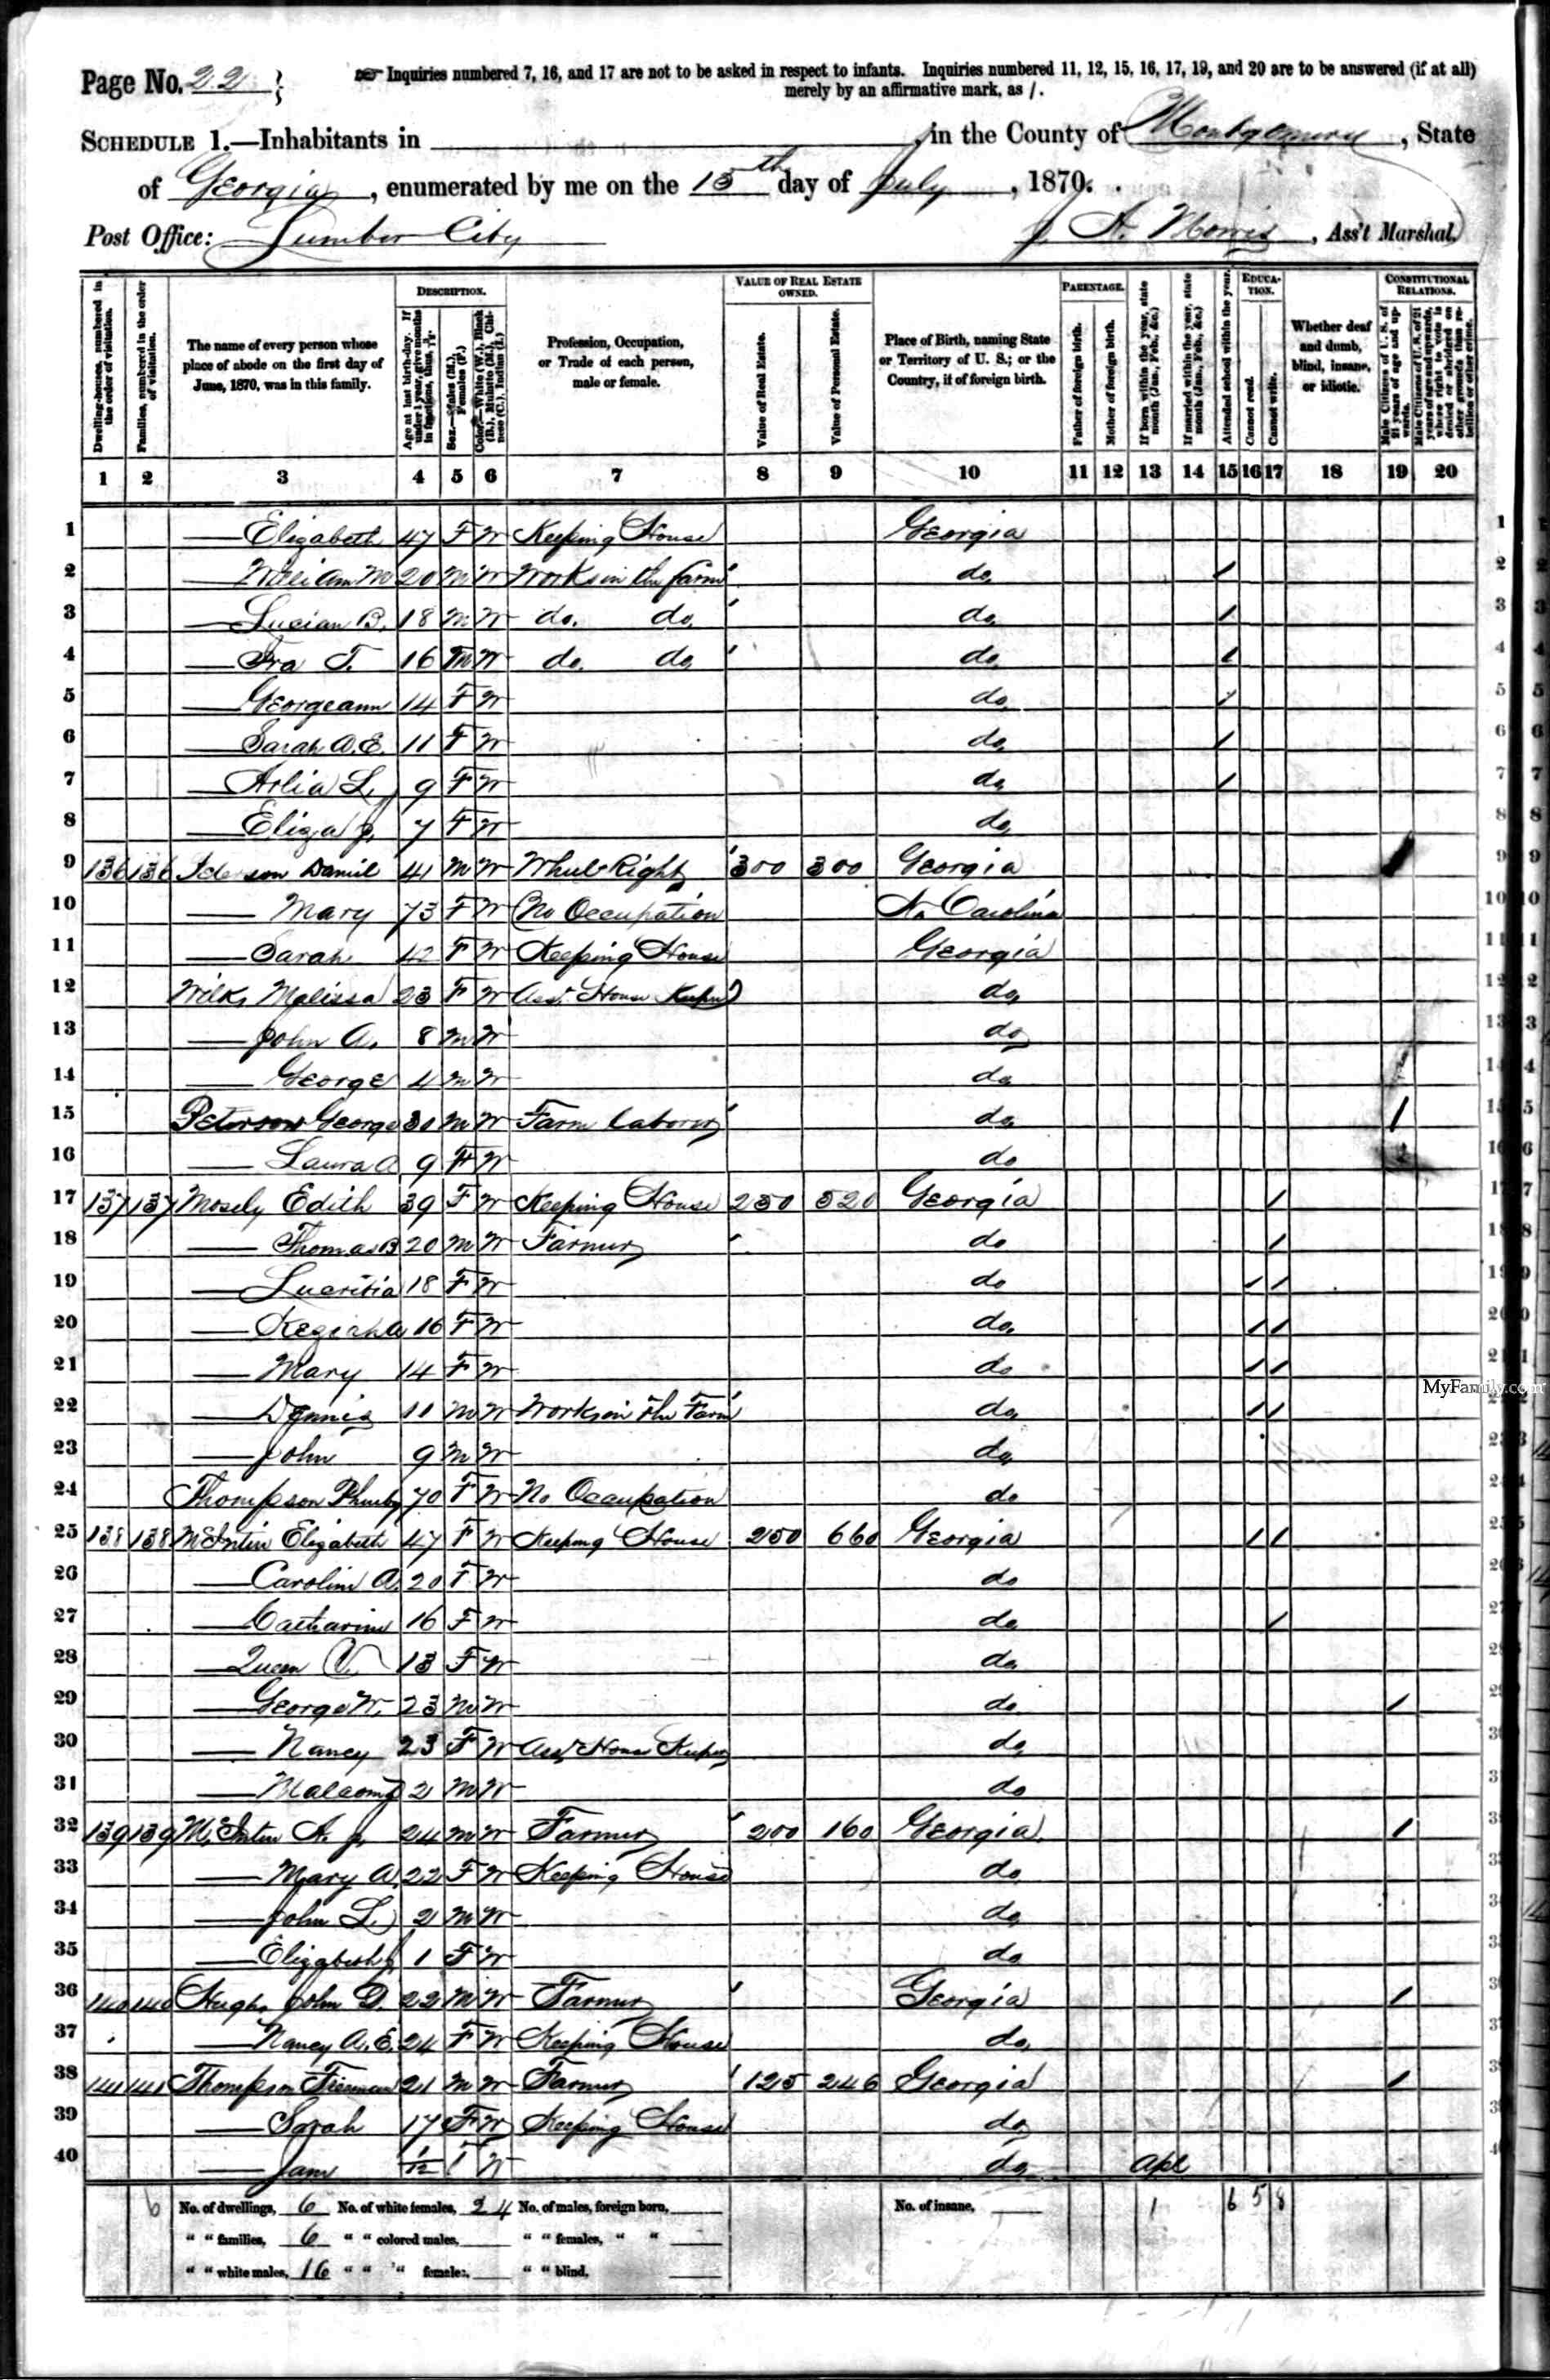 Page No. 22 } Inquiries numbered 7, 16, and 17 are not to be asked in respect to infants. Inquiries numbered 11, 12, 15, 16, 17, 19, and 20 are to be answered (if at all)
merely by an affirmative mark, as /.
SCHEDULE 1.—Inhabitants in , in the County of Montgomery, State
of Georgia, enumerated by me on the 15th day of July, 1870.
Post Office: Lumber City J. A. Morris, Ass't Marshal.
Dwelling-houses, numbered in the order of visitation.
Families, numbered in the order of visitation.
The name of every person whose place of abode on the first day of June, 1870, was in this family.
DESCRIPTION.
Age at last birth-day. If under 1 year, give months in fractions, thus,
Sex.—Males (M.), Females (F.)
Color.—White (W.), Black (B.), Mulatto (M.), Chinese (C.), Indian (I.)
Profession, Occupation, or Trade of each person, male or female.
VALUE OF REAL ESTATE OWNED.
Value of Real Estate.
Value of Personal Estate.
Place of Birth, naming State or Territory of U. S.; or the Country, if of foreign birth.
PARENTAGE.
Father of foreign birth.
Mother of foreign birth.
If born within the year, state month (Jan., Feb., &c.)
If married within the year, state month (Jan., Feb., &c.)
Attended school within the year.
EDUCATION.
Cannot read.
Cannot write.
Whether deaf and dumb, blind, insane, or idiotic.
CONSTITUTIONAL RELATIONS.
Male Citizens of U. S. of 21 years of age and upwards.
Male Citizens of U. S. of 21 years of age and upwards, whose right to vote is denied or abridged on other grounds than rebellion or other crime.
1 2 3 4 5 6 7 8 9 10 11 12 13 14 15 16 17 18 19 20
1 — Elizabeth 47 F W Keeping House Georgia 1
2 — William M 20 M W Works in the farm do / 2
3 — Lucian B. 18 M W do. do. do. / 3
4 — Ira T. 16 M W do. do. do. / 4
5 — Georgeann 14 F W do. / 5
6 — Sarah A. E. 11 F W do. / 6
7 — Arlia L. 9 F W do. / 7
8 — Eliza J. 7 F W do. 8
9 136 136 Daniel 41 M W Wheel Right 300 300 Georgia / 9
10 — Mary 73 F W No Occupation N. Carolina 10
11 — Sarah 42 F W Keeping House Georgia 11
12 Wilks Malissa 23 F W Asst. House Keeper do. 12
13 — John A. 8 M W do 13
14 — George 4 M W do. 14
15 Peterson George 30 M W Farm Laborer do. / 15
16 — Laura A 9 F W do 16
17 137 137 Mosely Edith 39 F W Keeping House 250 520 Georgia / 17
18 — Thomas B 20 M W Farmer do / 18
19 — Lucritia 18 F W do / / 19
20 — Keziah A 16 F W do. / / 20
21 — Mary 14 F W do / / 21
22 — Dennis 11 M W Works in the Farm do. / / 22
23 — John 9 M W do. 23
24 Thompson Pheuby 70 F W No Occupation do 24
25 138 138 McIntire Elizabeth 47 F W Keeping House 250 660 Georgia / / 25
26 — Caroline A. 20 F W do 26
27 — Catharine 16 F W do. / 27
28 — Queen V. 13 F W do. 28
29 — George W. 23 M W do / 29
30 — Nancy 23 F W Asst House Keeper do. 30
31 — Malcom J 2 M W do 31
32 139 139 McIntire A. J. 24 M W Farmer 200 160 Georgia. / 32
33 — Mary A. 22 F W Keeping House do 33
34 — John L. 2 M W do. 34
35 — Elizabeth J. 1 F W do 35
36 140 140 Hughs John D. 22 M W Farmer Georgia / 36
37 — Nancy A. E. 24 F W Keeping House do. 37
38 141 141 Thompson Freeman 21 M W Farmer 125 246 Georgia / 38
39 — Sarah 17 F W Keeping House do 39
40 — Jane 1/12 F W do. Apl 40
6 No. of dwellings, 6 No. of white females, 24 No. of males, foreign born, No. of insane, 1 6 5 8
" " families, 6 " " colored males, " " females, " "
" " white males, 16 " " " females, " " blind,
MyFamily.com